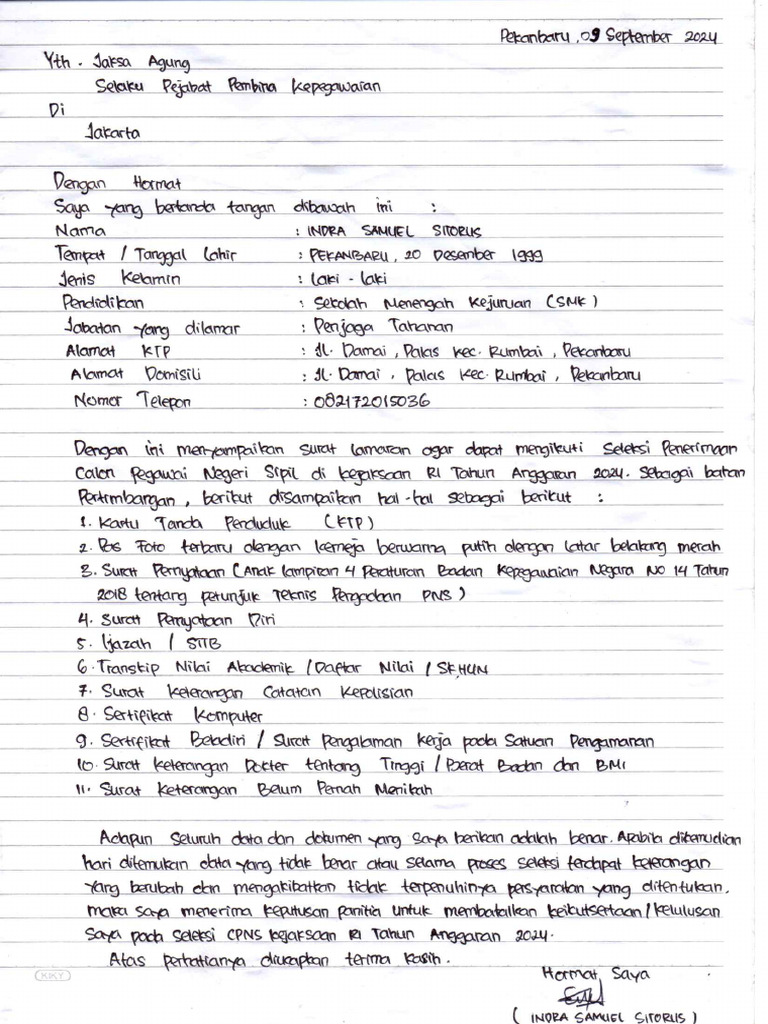 Pekanbaru, 09 September 2024
Yth. Jaksa Agung
Selaku Pejabat Pembina Kepegawaian
Di
Jakarta
Dengan Hormat
Saya yang bertanda tangan dibawah ini :
Nama : INDRA SAMUEL SITORUS
Tempat / Tanggal Lahir : PEKANBARU, 20 Desember 1999
Jenis Kelamin : Laki - Laki
Pendidikan : Sekolah Menengah Kejuruan (SMK)
Jabatan yang dilamar : Penjaga Tahanan
Alamat KTP : Jl. Damai, Palas Kec. Rumbai, Pekanbaru
Alamat Domisili : Jl. Damai, Palas Kec. Rumbai, Pekanbaru
Nomor Telepon : 082172015036
Dengan ini menyampaikan surat lamaran agar dapat mengikuti Seleksi Penerimaan
Calon Pegawai Negeri Sipil di Kejaksaan RI Tahun Anggaran 2024. Sebagai bahan
Pertimbangan, berikut disampaikan hal-hal sebagai berikut :
1. Kartu Tanda Penduduk (KTP)
2. Pas Foto terbaru dengan kemeja berwarna putih dengan latar belakang merah
3. Surat Pernyataan (Anak lampiran 4 Peraturan Badan Kepegawaian Negara No 14 Tahun
2018 tentang petunjuk Teknis Pengadaan PNS)
4. Surat Pernyataan Diri
5. Ijazah / STTB
6. Transkip Nilai Akademik / Daftar Nilai / SKHUN
7. Surat Keterangan Catatan Kepolisian
8. Sertifikat Komputer
9. Sertifikat Beladiri / Surat Pengalaman Kerja pada Satuan Pengamanan
10. Surat Keterangan Dokter tentang Tinggi / Berat Badan dan BMI
11. Surat Keterangan Belum Pernah Menikah
Adapun Seluruh data dan dokumen yang saya berikan adalah benar. Apabila dikemudian
hari ditemukan data yang tidak benar atau selama proses seleksi terdapat keterangan
yang berubah dan mengakibatkan tidak terpenuhinya persyaratan yang ditentukan,
maka saya menerima keputusan panitia untuk membatalkan keikutsertaan/kelulusan
Saya pada seleksi CPNS Kejaksaan RI Tahun Anggaran 2024.
Atas perhatianya diucapkan terima kasih.
KIKY
Hormat Saya
(INDRA SAMUEL SITORUS)